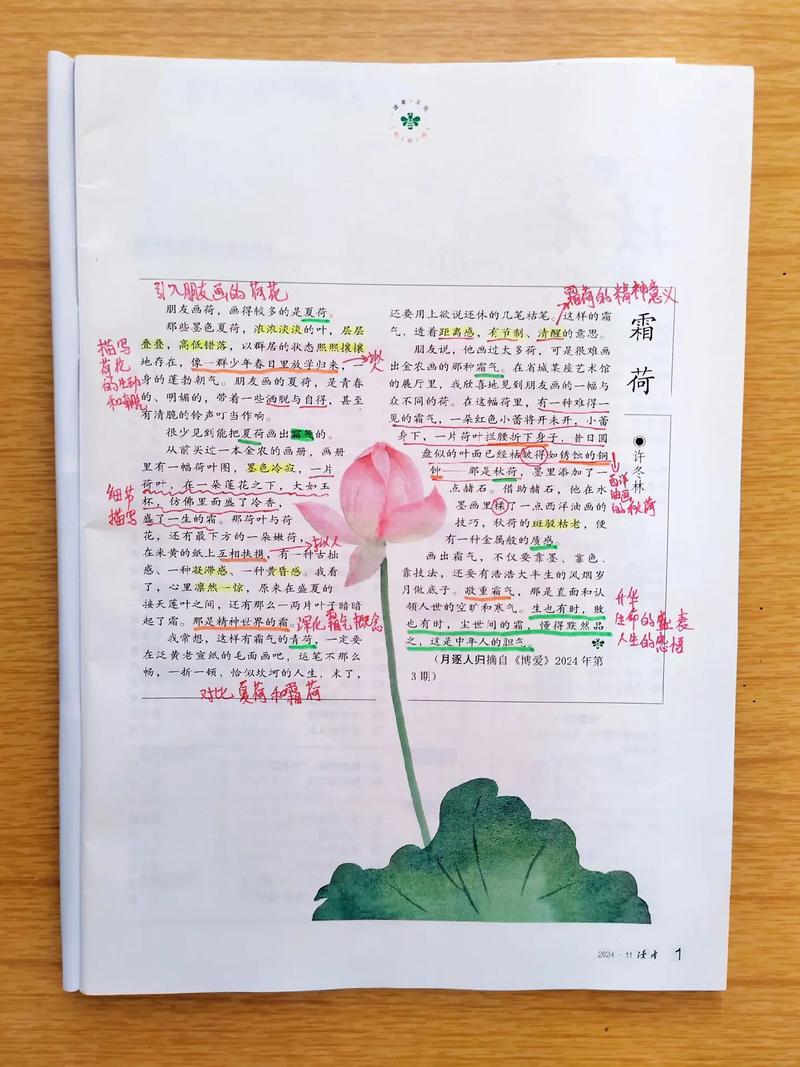 引入朋友画的荷花
朋友画荷，画得较多的是夏荷。
那些墨色夏荷，浓浓淡淡的叶，层层
叠叠，高低错落，以群居的状态熙熙攘攘
地存在，像一群少年春日里放学归来，一
身的蓬勃朝气。朋友画的夏荷，是青春
的、明媚的，带着一些洒脱与自得，甚至
有清脆的铃声叮当作响。
拟人
描写
荷花
的生动
和朝气
很少见到能把夏荷画出霜气的。
从前买过一本金农的画册，画册
里有一幅荷叶图，墨色冷寂，一片
荷叶，在一朵莲花之下，大如玉
杯，仿佛里面盛了冷香，
盛了一生的霜。那荷叶与荷
花，还有最下方的一朵嫩荷，
在米黄的纸上互相扶携，有一种古拙
感、一种凝滞感、一种黄昏感。我看
了，心里凛然一惊，原来在盛夏的
接天莲叶之间，还有那么一两片叶子暗暗
起了霜。那是精神世界的霜。
细节
描写
拟人
深化霜气概念
我常想，这样有霜气的青荷，一定要
在泛黄老宣纸的毛面画吧，运笔不那么
畅，一折一顿，恰似坎坷的人生，末了，
对比夏荷和霜荷
霜荷的精神意义
还要用上欲说还休的几笔枯笔。这样的霜
气，透着距离感，有节制、清醒的意思。
朋友说，他画过太多荷，可是很难画
出金农画的那种霜气。在省城某座艺术馆
的展厅里，我欣喜地见到朋友的一幅与
众不同的荷。在这幅荷里，有一种难得一
见的霜气，一朵红色小蕾将开未开，小蕾
身下，一片荷叶拦腰折下身子，昔日圆
盘似的叶面已经枯皱得如锈蚀的铜
钟——那是秋荷，墨里添加了一
点赭石。借助赭石，他在水
墨画里糅了一点西洋油画的
技巧，秋荷的斑驳枯老，便
有一种金属般的质感。
西洋
油画
的秋荷
画出霜气，不仅要靠墨、靠色、
靠技法，还要有浩浩大半生的风烟岁
月做底子。敬重霜气，那是直面和认
领人世的空旷和寒气。生也有时，败
也有时，尘世间的霜，懂得默然品
之，这是中年人的胆气。
升华
生命的盛衰
人生的感悟
（月逐人归摘自《博爱》2024年第
3期）
霜荷
●许冬林
2024·11 读者 1